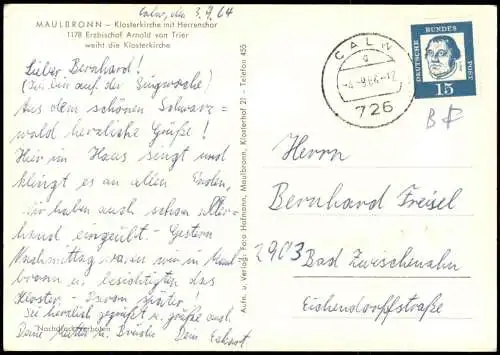 Calw, den 3.9.64
MAULBRONN – Klosterkirche mit Herrenchor
1178 Erzbischof Arnold von Trier
weiht die Klosterkirche
Lieber Bernhard!
(Bin hier auf der Singwoche)
Aus dem schönen Schwarz=
wald herzliche Grüße!
Hier im Haus singt und
klingt es an allen Enden,
wir haben auch schon aller=
hand eingeübt. – Gestern
Nachmittag waren wir in Maul=
bronn u. besichtigten das
Kloster. – Davon später!
Sei herzlich gegrüßt u. grüße auch
Deine Mutter u. Brüder Dein Eckart
Nachdruck verboten
Aufn. u. Verlag: Foto Hofmann, Maulbronn, Klosterhof 21 - Telefon 455
CALW
a
726
DEUTSCHE
BUNDES
POST
15
Herrn
Bernhard Freisel
2903 Bad Zwischenahn
Eichendorffstraße